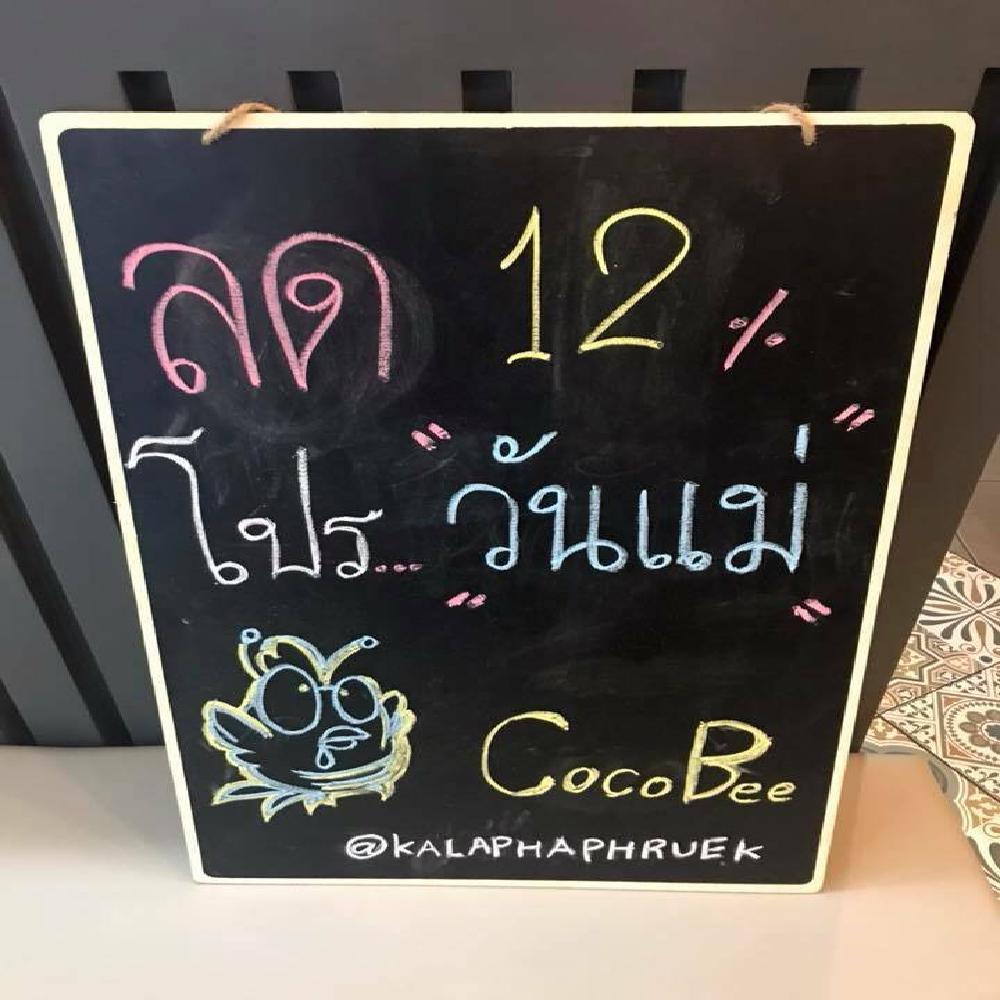 ลด 12 %
โปร... "วันแม่"
CocoBee
@KALAPHAPHRUEK